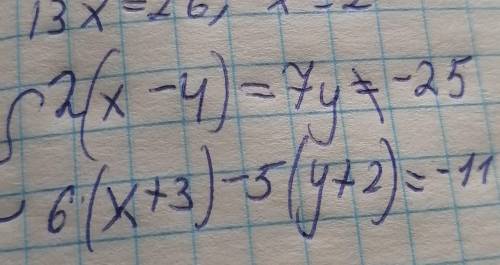 13x = 26, x = 2
2(x - 4) = 7y ≠ -25
6(x + 3) - 5(y + 2) = -11